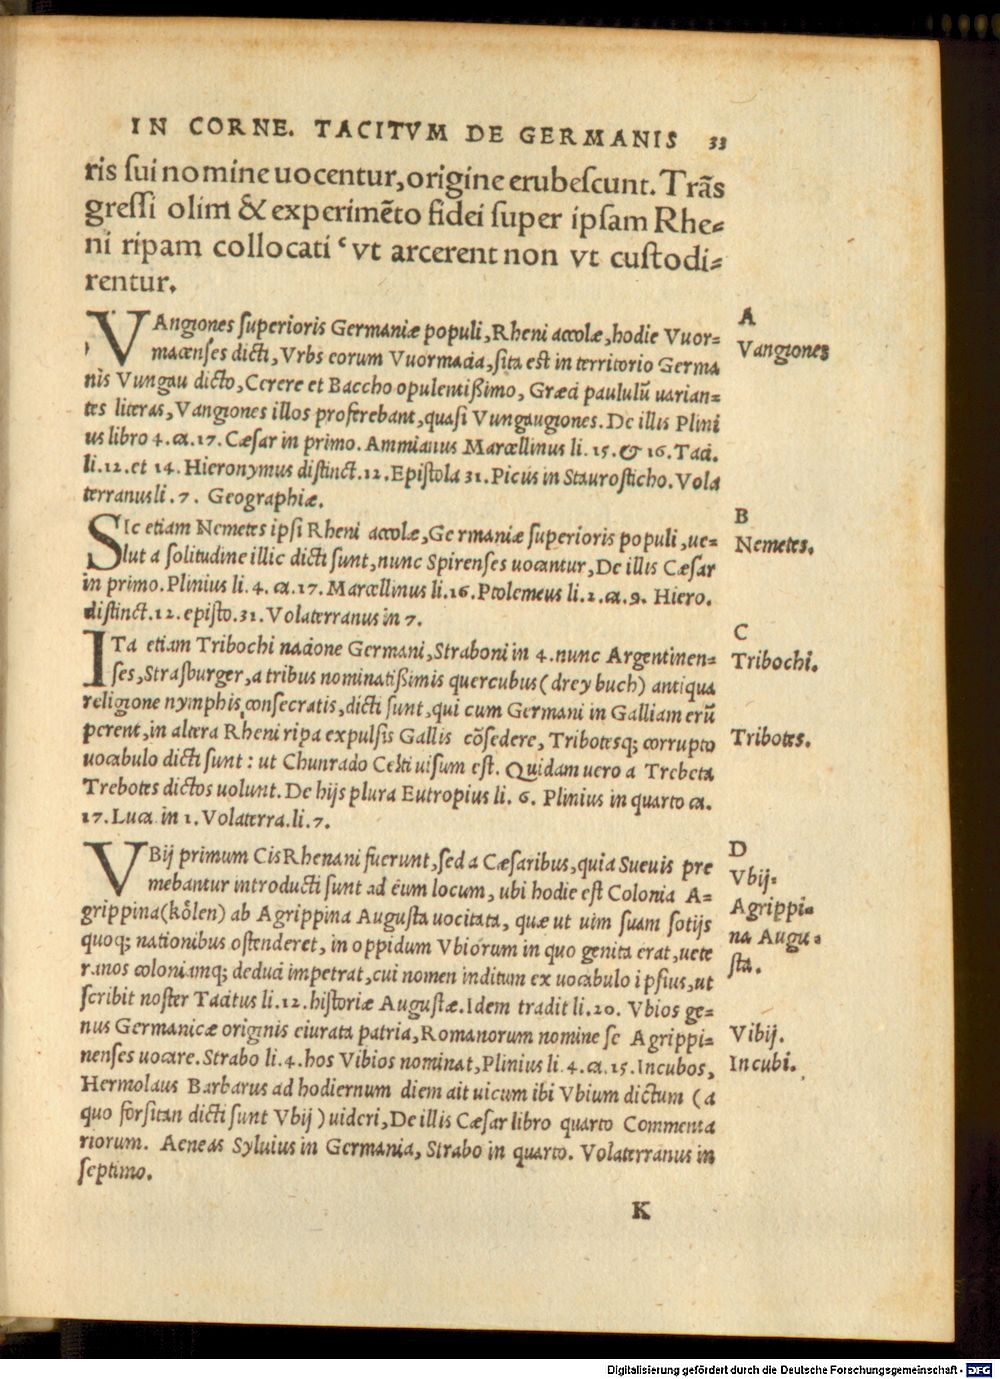 IN CORNE. TACITVM DE GERMANIS 33
ris sui nomine uocentur, origine erubescunt. Trãs
gressi olim & experimẽto fidei super ipsam Rhe=
ni ripam collocati ‘ vt arcerent non vt custodi=
rentur.
A
VAngiones superioris Germaniæ populi, Rheni accolæ, hodie Vuor=
Vangiones
macenses dicti, Vrbs eorum Vuormacia, sita est in territorio Germa
nis Vungau dicto, Cerere et Baccho opulentißimo, Græci paululũ uarian=
tes literas, Vangiones illos proferebant, quasi Vungaugiones. De illis Plini
us libro 4. ca. 17. Cæsar in primo. Ammianus Marcellinus li. 15. & 16. Taci.
li. 12. et 14. Hieronymus distinct. 12. Epistola 31. Picus in Staurosticho. Vola
terranus li. 7. Geographiæ.
B
SIc etiam Nemetes ipsi Rheni accolæ, Germaniæ superioris populi, ue=
Nemetes.
lut a solitudine illic dicti sunt, nunc Spirenses uocantur, De illis Cæsar
in primo. Plinius li. 4. ca. 17. Marcellinus li. 16. Ptolemeus li. 2. ca. 9. Hiero.
distinct. 12. episto. 31. Volaterranus in 7.
C
ITa etiam Tribochi nacione Germani, Straboni in 4. nunc Argentinen=
Tribochi.
ses, Strasburger, a tribus nominatißimis quercubus (drey buch) antiqua
religione nymphis consecratis, dicti sunt, qui cum Germani in Galliam erũ
perent, in altera Rheni ripa expulsis Gallis cõsedere, Tribotesq; corrupto
Tribotes.
uocabulo dicti sunt : ut Chunrado Celti uisum est. Quidam uero a Trebeta
Trebotes dictos uolunt. De hijs plura Eutropius li. 6. Plinius in quarto ca.
17. Luca. in 1. Volaterra. li. 7.
D
VBij primum CisRhenani fuerunt, sed a Cæsaribus, quia Sueuis pre
Vbij.
mebantur introducti sunt ad eum locum, ubi hodie est Colonia A=
grippina (kôlen) ab Agrippina Augusta uocitata, quæ ut uim suam sotijs
Agrippi=
quoq; nationibus ostenderet, in oppidum Vbiorum in quo genita erat, uete
na Augu=
ranos coloniamq; deduci impetrat, cui nomen inditum ex uocabulo ipsius, ut
sta.
scribit noster Tacitus li. 12. historiæ Augustæ. Idem tradit li. 20. Vbios ge=
nus Germanicæ originis eiurata patria, Romanorum nomine se Agrippi=
Vibij.
nenses uocare. Strabo li. 4. hos Vibios nominat, Plinius li. 4. ca. 15. Incubos,
Incubi.
Hermolaus Barbarus ad hodiernum diem ait uicum ibi Vbium dictum (a
quo forsitan dicti sunt Vbij) uideri, De illis Cæsar libro quarto Commenta
riorum. Aeneas Syluius in Germania, Strabo in quarto. Volaterranus in
septimo.
K
Digitalisierung gefördert durch die Deutsche Forschungsgemeinschaft - DFG